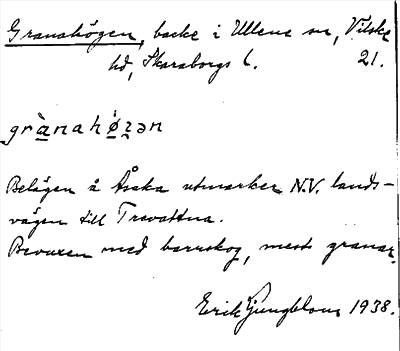 Granahögen, backe i Ullene sn, Vilske
hd, Skaraborgs l. 21.
grànahö̀gən
Belägen å Åska utmarker N.V. lands-
vägen till Trevattna.
Bevuxen med barrskog, mest granar.
Erik Ljungblom 1938.